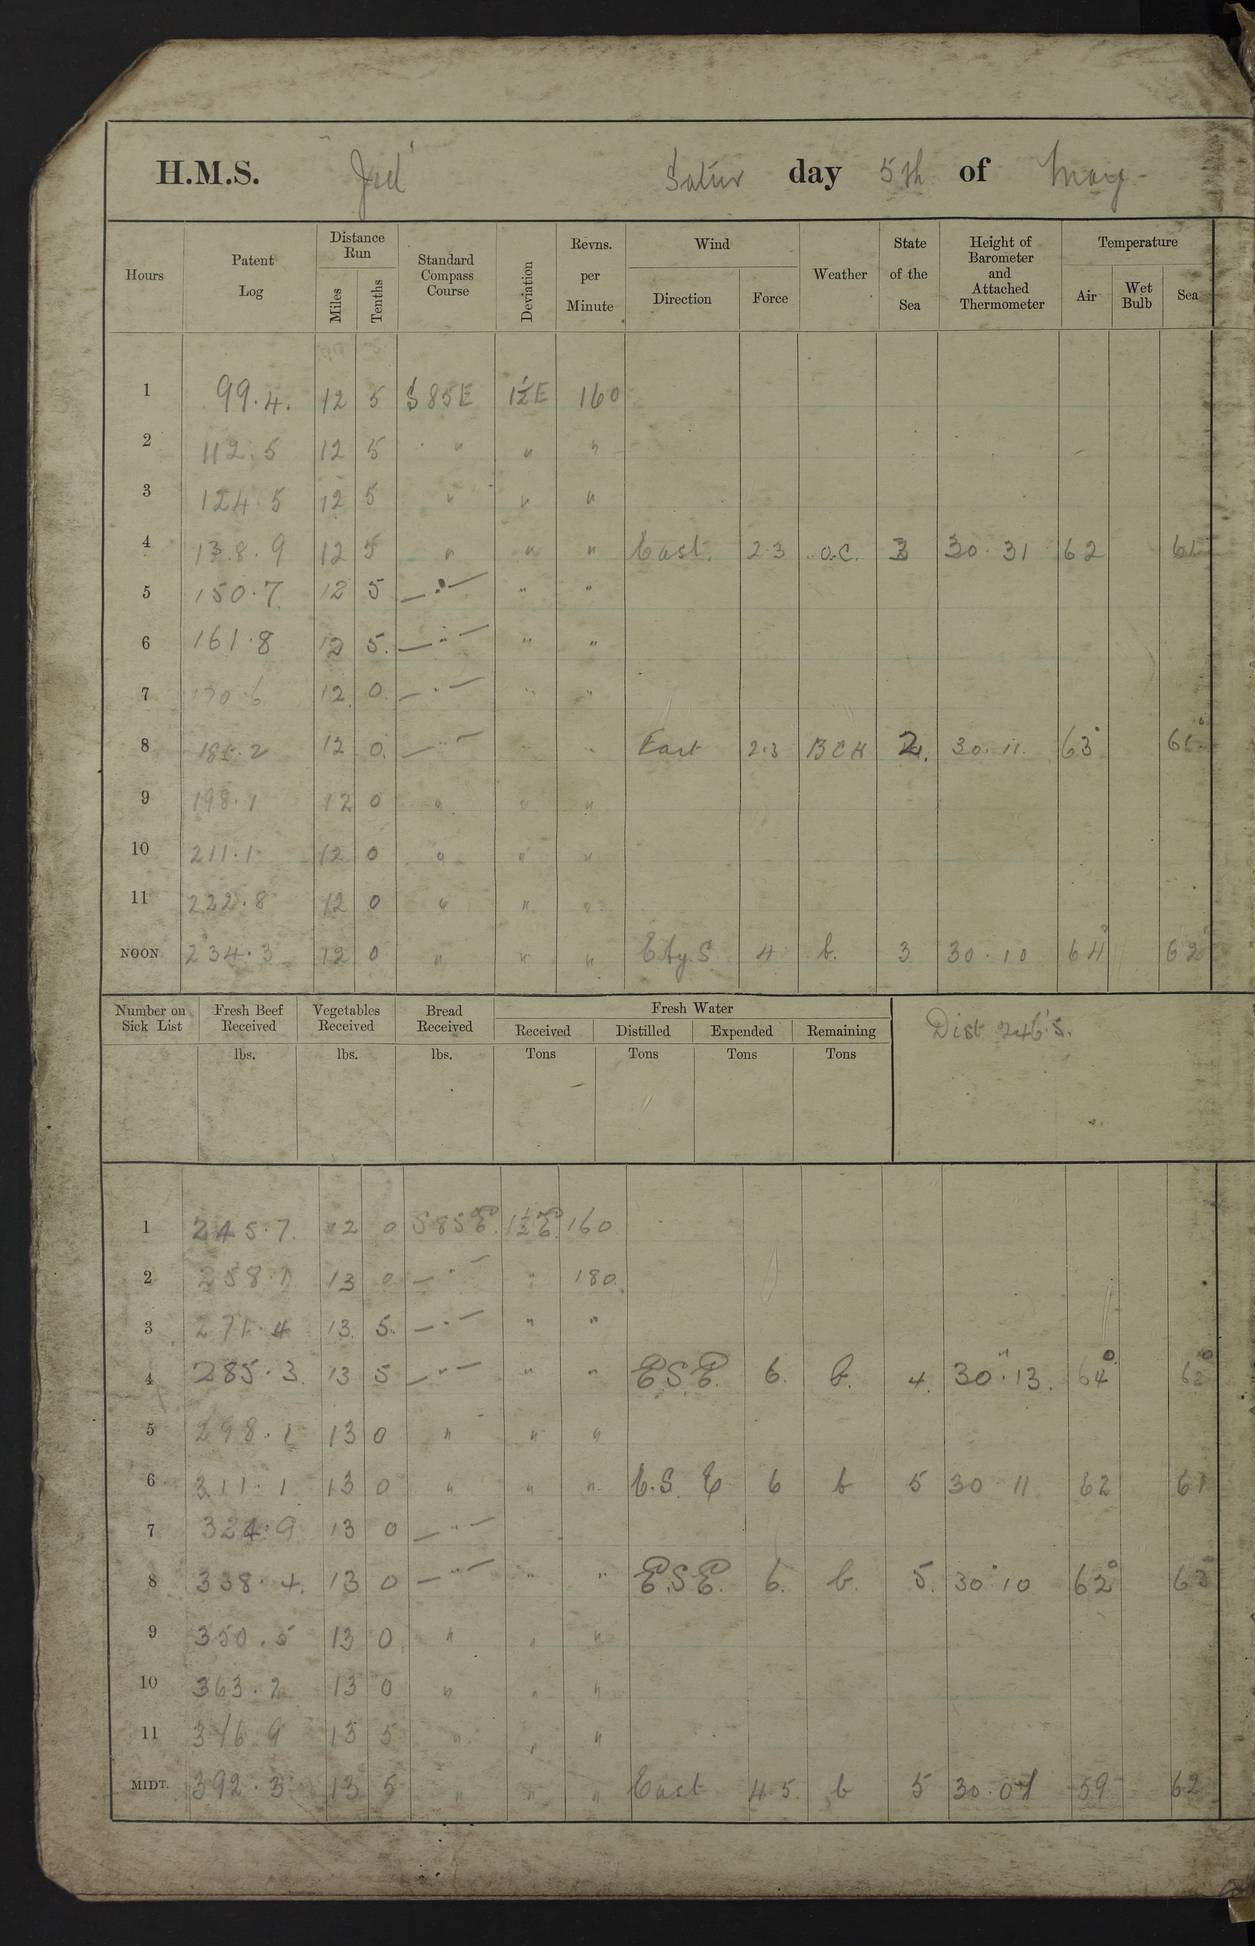 H.M.S. "Jed" Satur day 5th of May
Hours Patent Log Distance Run Miles Tenths Standard Compass Course Deviation Revns. per Minute Wind Direction Force Weather State of the Sea Height of Barometer and Attached Thermometer Temperature Air Wet Bulb Sea
1 99.4. 12 5 S 85 E 1½E 160
2 112.5 12 5 " " "
3 124.5 12 5 " " "
4 138.9 12 5 " " " East. 2.3 o.c. 3 30.31 62 61
5 150.7 12 5 —"— " "
6 161.8 12 5. —"— " "
7 170.6 12 0. —"— " "
8 185.2 12 0. —"— " " East 2.3 BCM 2. 30.11 63° 61°
9 198.1 12 0 " " "
10 211.1 12 0 " " "
11 222.8 12 0 " " "
NOON 234.3 12 0 " " " E by S 4 b. 3 30.10 64° 62°
Number on Sick List Fresh Beef Received Vegetables Received Bread Received Fresh Water
Received Distilled Expended Remaining
lbs. lbs. lbs. Tons Tons Tons Tons
Dist 246'.5.
1 245.7. 12 0 S85E. 1½E. 160
2 258.1 13 0 —"— " 180.
3 271.4 13. 5. —"— " "
4 285.3. 13 5 —"— " " E.S.E. 6. b. 4. 30".13. 64° 62°
5 298.1 13 0 " " "
6 311.1 13 0 " " " E.S.E 6 b 5 30 11 62 61
7 324.9 13 0 —"—
8 338.4. 13 0 —"— " " E.S.E. 6. b. 5. 30".10 62° 63°
9 350.5 13 0 " " "
10 363.2 13 0 " " "
11 376.9 13 5 " " "
MIDT. 392.3 13 5 " " " East 4.5. b 5 30.07 59 62